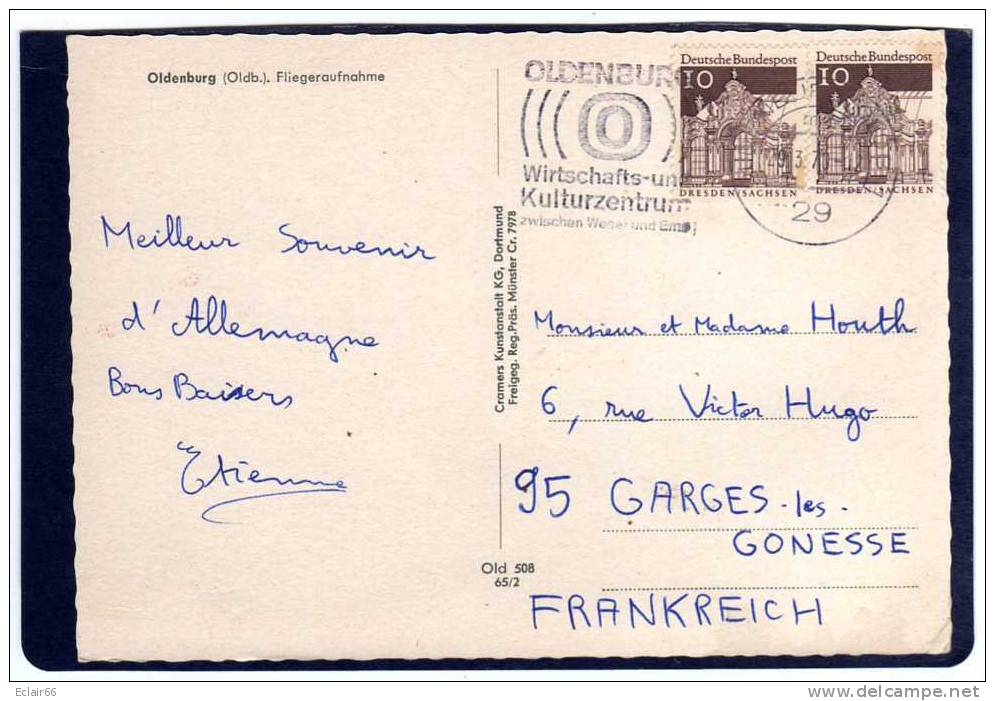 Oldenburg (Oldb.). Fliegeraufnahme
OLDENBUR
O
Wirtschafts-un
Kulturzentrum
zwischen Weser und Ems
Deutsche Bundespost
10
DRESDEN/SACHSEN
Deutsche Bundespost
10
DRESDEN/SACHSEN
29
Meilleur Souvenir
d'Allemagne
Bons Baisers
Etienne
Cramers Kunstanstalt KG, Dortmund
Freigeg. Reg.-Präs. Münster Cr. 7978
Monsieur et Madame Houth
6, rue Victor Hugo
95 GARGES-les-
GONESSE
FRANKREICH
Old 508
65/2
Eclair66
delcampe.net